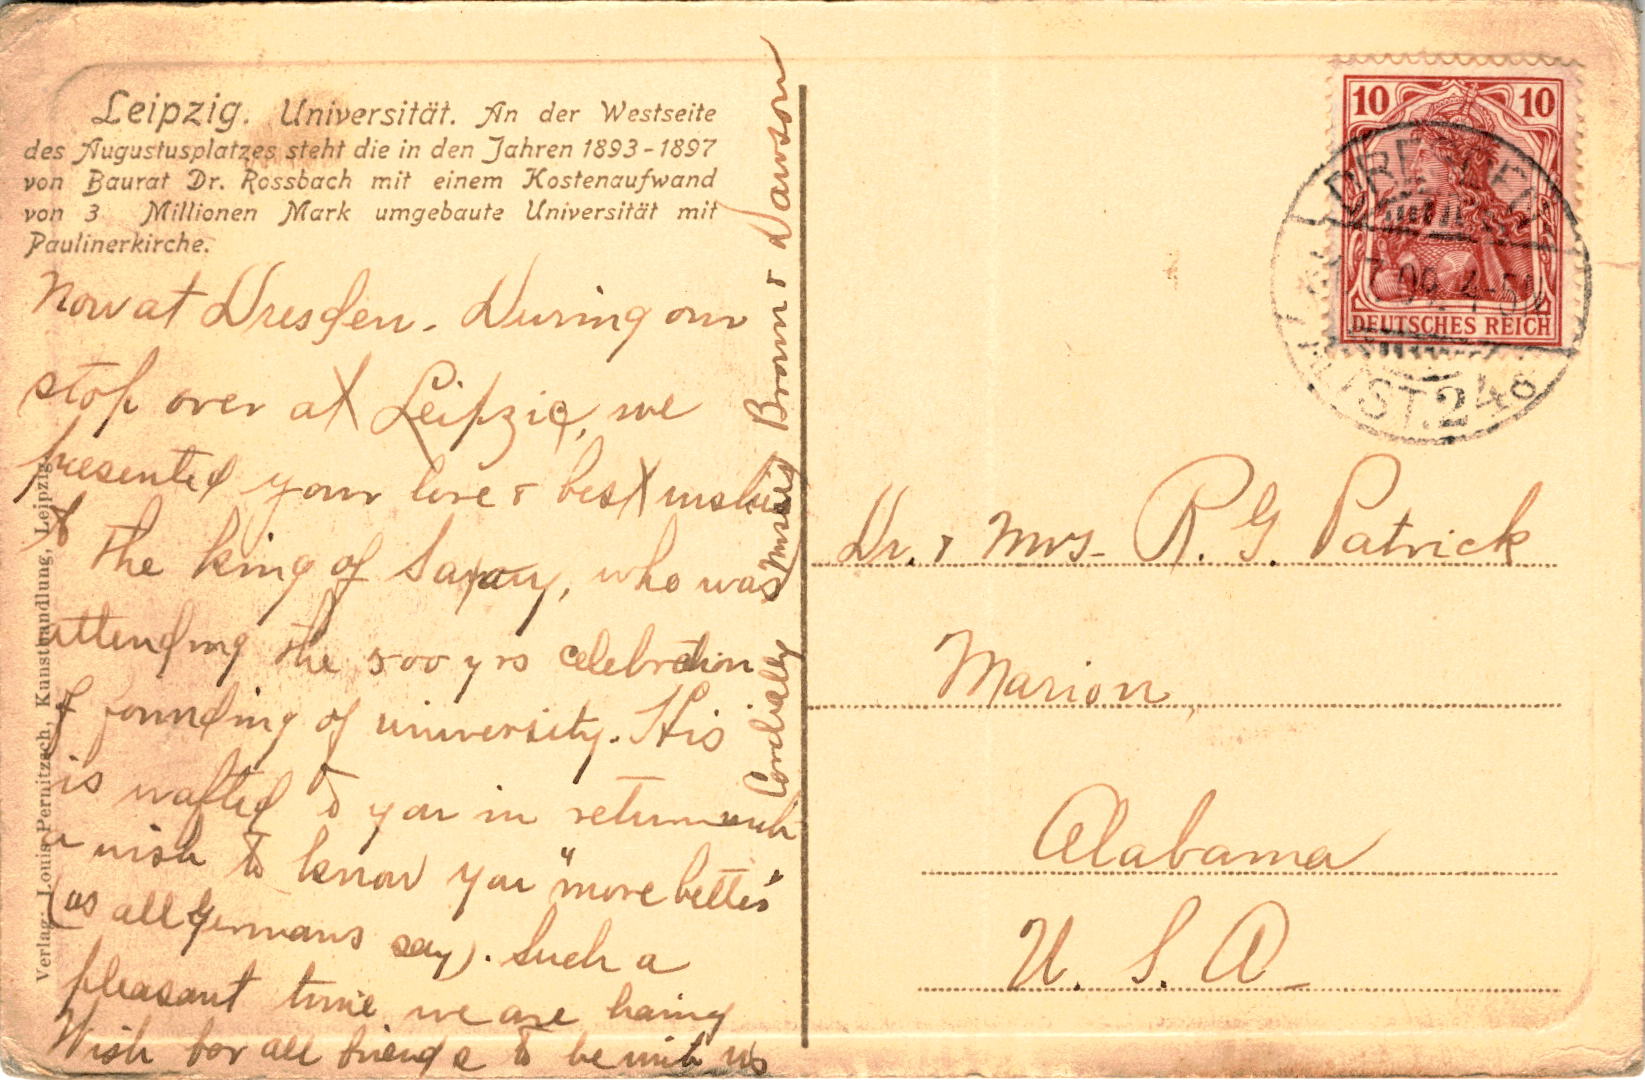 Leipzig. Universität. An der Westseite
des Augustusplatzes steht die in den Jahren 1893-1897
von Baurat Dr. Rossbach mit einem Kostenaufwand
von 3 Millionen Mark umgebaute Universität mit
Paulinerkirche.
Now at Dresden. During our
stop over at Leipzig, we
presented your love & best wishes
to the King of Saxony, who was
attending the 500 yrs celebration
of founding of university. His
is wafted to you in return with
a wish to know you "more better"
(as all Germans say). Such a
pleasant time we are having
Wish for all friends to be with us
Cordially Misses Brown & Dawson
Verlag: Louis Pernitzsch, Kunsthandlung, Leipzig.
10 10
DEUTSCHES REICH
DRESDEN
7.09. 4-5N
ALTST. 24
Dr. & Mrs. R. G. Patrick
Marion,
Alabama
U. S. A.